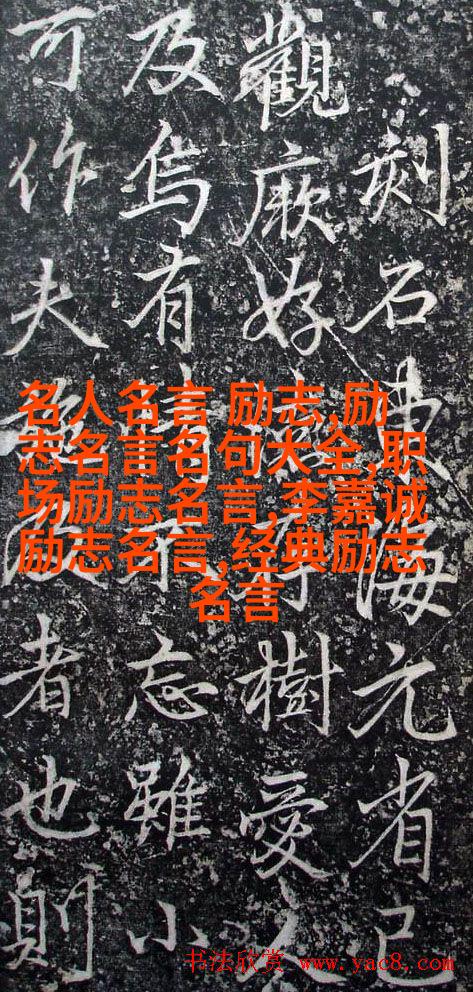 刻石海元省已
觀厥好樹愛
及烏有忘雖小
可作夫者也則
名人名言 励志,励
志名言名句大全,职
场励志名言,李嘉诚
励志名言,经典励志
名言
书法欣赏 www.yac8.com